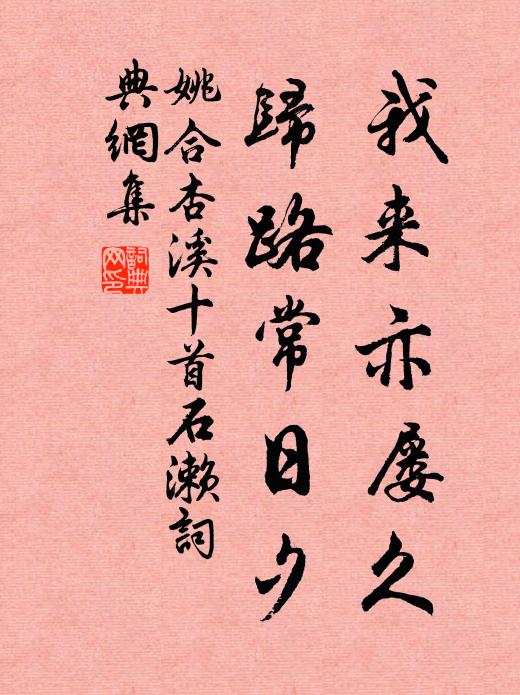 我来亦屡久
歸路常日夕
姚合杏溪十首石瀨詞
典網集
詞典
网印